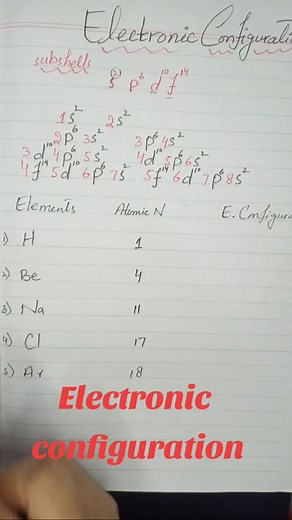 Electronic Configurati
subshells
s² p⁶ d¹⁰ f¹⁴
1s² 2s²
2p⁶ 3s² 3p⁶ 4s²
3d¹⁰ 4p⁶ 5s² 4d¹⁰ 5p⁶ 6s²
4f¹⁴ 5d¹⁰ 6p⁶ 7s² 5f¹⁴ 6d¹⁰ 7p⁶ 8s²
Elements Atomic N E. Configura
1) H 1
2) Be 4
3) Na 11
4) Cl 17
5) Ar 18
Electronic
configuration